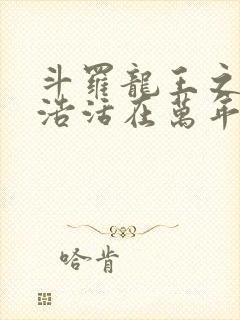 斗羅龍王之
浩活在萬年
哈肯